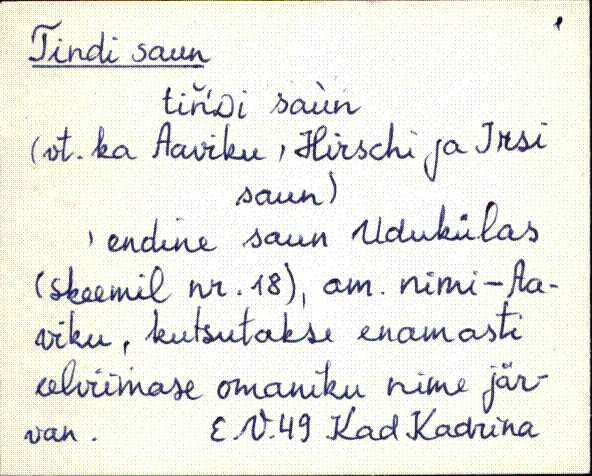 Tindi saun
tiňDi saùn
(vt. ka Aaviku, Hirschi ja Irsi
saun)
, endine saun Udukülas
(skeemil nr. 18), am. nimi-Aa-
viku, kutsutakse enamasti
omaniku nime jär-
van. E.V.49 Kad Kadrina